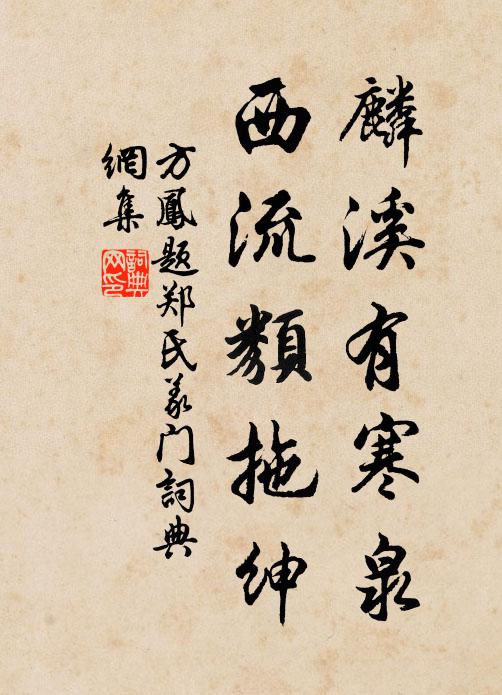 麟溪有寒泉
西流類拖紳
方鳳題郑氏义门詞典
網集
詞典
网印